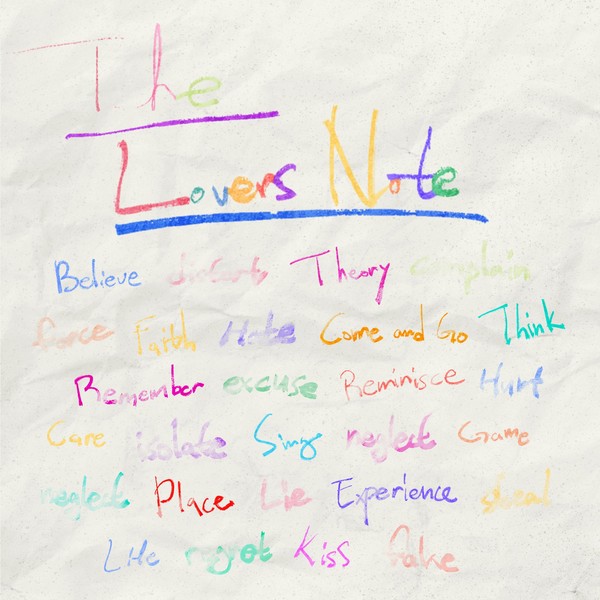 The
Lovers Note
Believe Theory complain
force Faith Hate Come and Go Think
Remember excuse Reminisce Hurt
Care isolate Sing neglect Game
neglect Place Lie Experience
Life regret Kiss fake